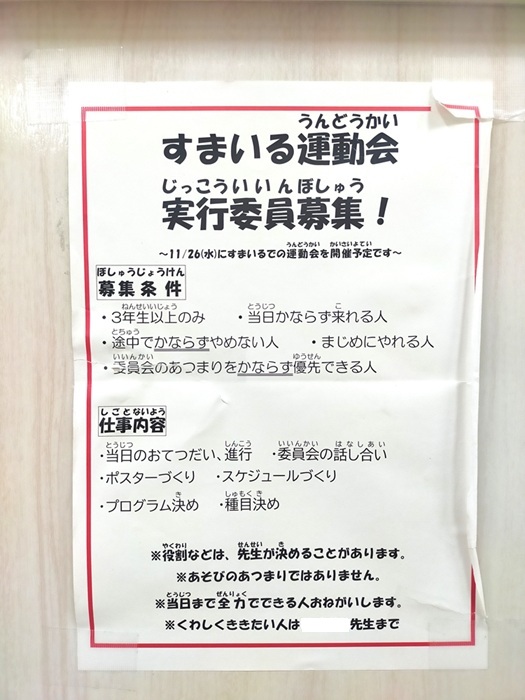 うんどうかい
すまいる運動会
じっこういいんぼしゅう
実行委員募集！
うんどうかい かいさいよてい
～11/26(水)にすまいるでの運動会を開催予定です～
ぼしゅうじょうけん
募集条件
ねんせいいじょう とうじつ こ
・3年生以上のみ ・当日かならず来れる人
とちゅう
・途中でかならずやめない人 ・まじめにやれる人
いいんかい ゆうせん
・委員会のあつまりをかならず優先できる人
しごとないよう
仕事内容
とうじつ しんこう いいんかい はなしあい
・当日のおてつだい、進行 ・委員会の話し合い
・ポスターづくり ・スケジュールづくり
き しゅもくき
・プログラム決め ・種目決め
やくわり せんせい き
※役割などは、先生が決めることがあります。
※あそびのあつまりではありません。
とうじつ ぜんりょく
※当日まで全力でできる人おねがいします。
※くわしくききたい人は 先生まで